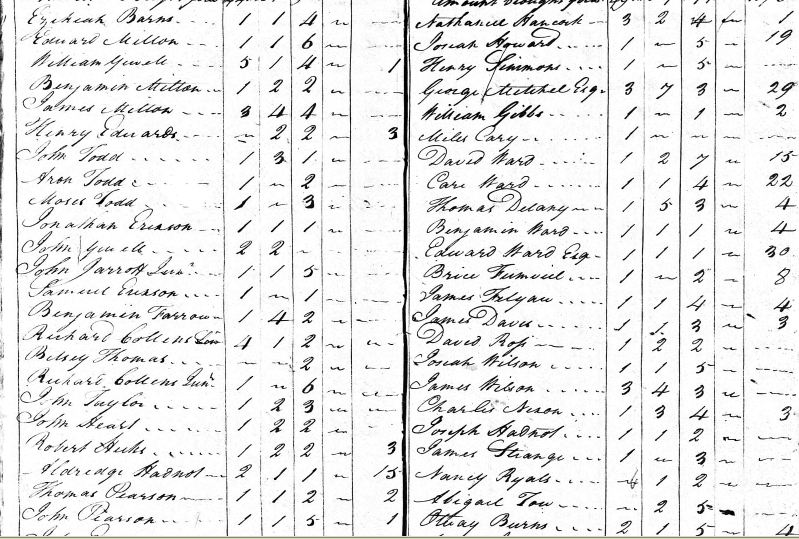 Ezekiah Barns 1 1 4 "
Edward Millon 1 1 6 "
William Yewell 5 1 4 " 1
Benjamin Milton 1 2 2 "
James Millon 3 4 4 "
Henry Edwards " 2 2 " 3
John Todd 1 3 1 "
Aron Todd 1 " 2 "
Moses Todd 1 " 3 "
Jonathan Erixson 1 1 1 "
John Yewell 2 2 "
John Jarrott Junr 1 1 5 "
Samuel Erixson 1 " 1 "
Benjamin Farrow 1 4 2 "
Richard Collens 4 1 2 "
Betsey Thomas 2 "
Richard Collens Junr 1 " 6 "
John Taylor 1 2 3 "
John Heart 1 2 2 "
Robert Hicks 1 2 2 " 3
Aldredge Hadnot 2 1 1 " 15
Thomas Pearson 1 1 2 " 2
John Pearson 1 1 5 " 1
Amount brought
Nathaniel Hancock 3 2 4 1
Josiah Howard 1 " 5 " 19
Henry Simmons 1 " 5 "
George Mitchel Esq 3 7 3 " 29
William Gibbs 1 " 1 " 2
Miles Cary 1 " " "
David Ward 1 2 7 " 15
Care Ward 1 1 4 " 22
Thomas Delany 1 5 3 " 4
Benjamin Ward 1 1 1 " 4
Edward Ward Esq 1 1 1 " 30
Brice 1 " 2 " 8
James Frlyaw 1 1 4 " 4
James Davis 1 1 3 " 3
David Ross 1 2 2 "
Josiah Wilson 1 1 5 "
James Wilson 3 4 3 "
Charles Nixon 1 3 4 " 3
Joseph Hadnot 1 1 2 "
James Strange 1 " 3 "
Nancy Ryals 1 2 "
Abigail Tow " 2 5 "
Otway Burns 2 1 5 " 4